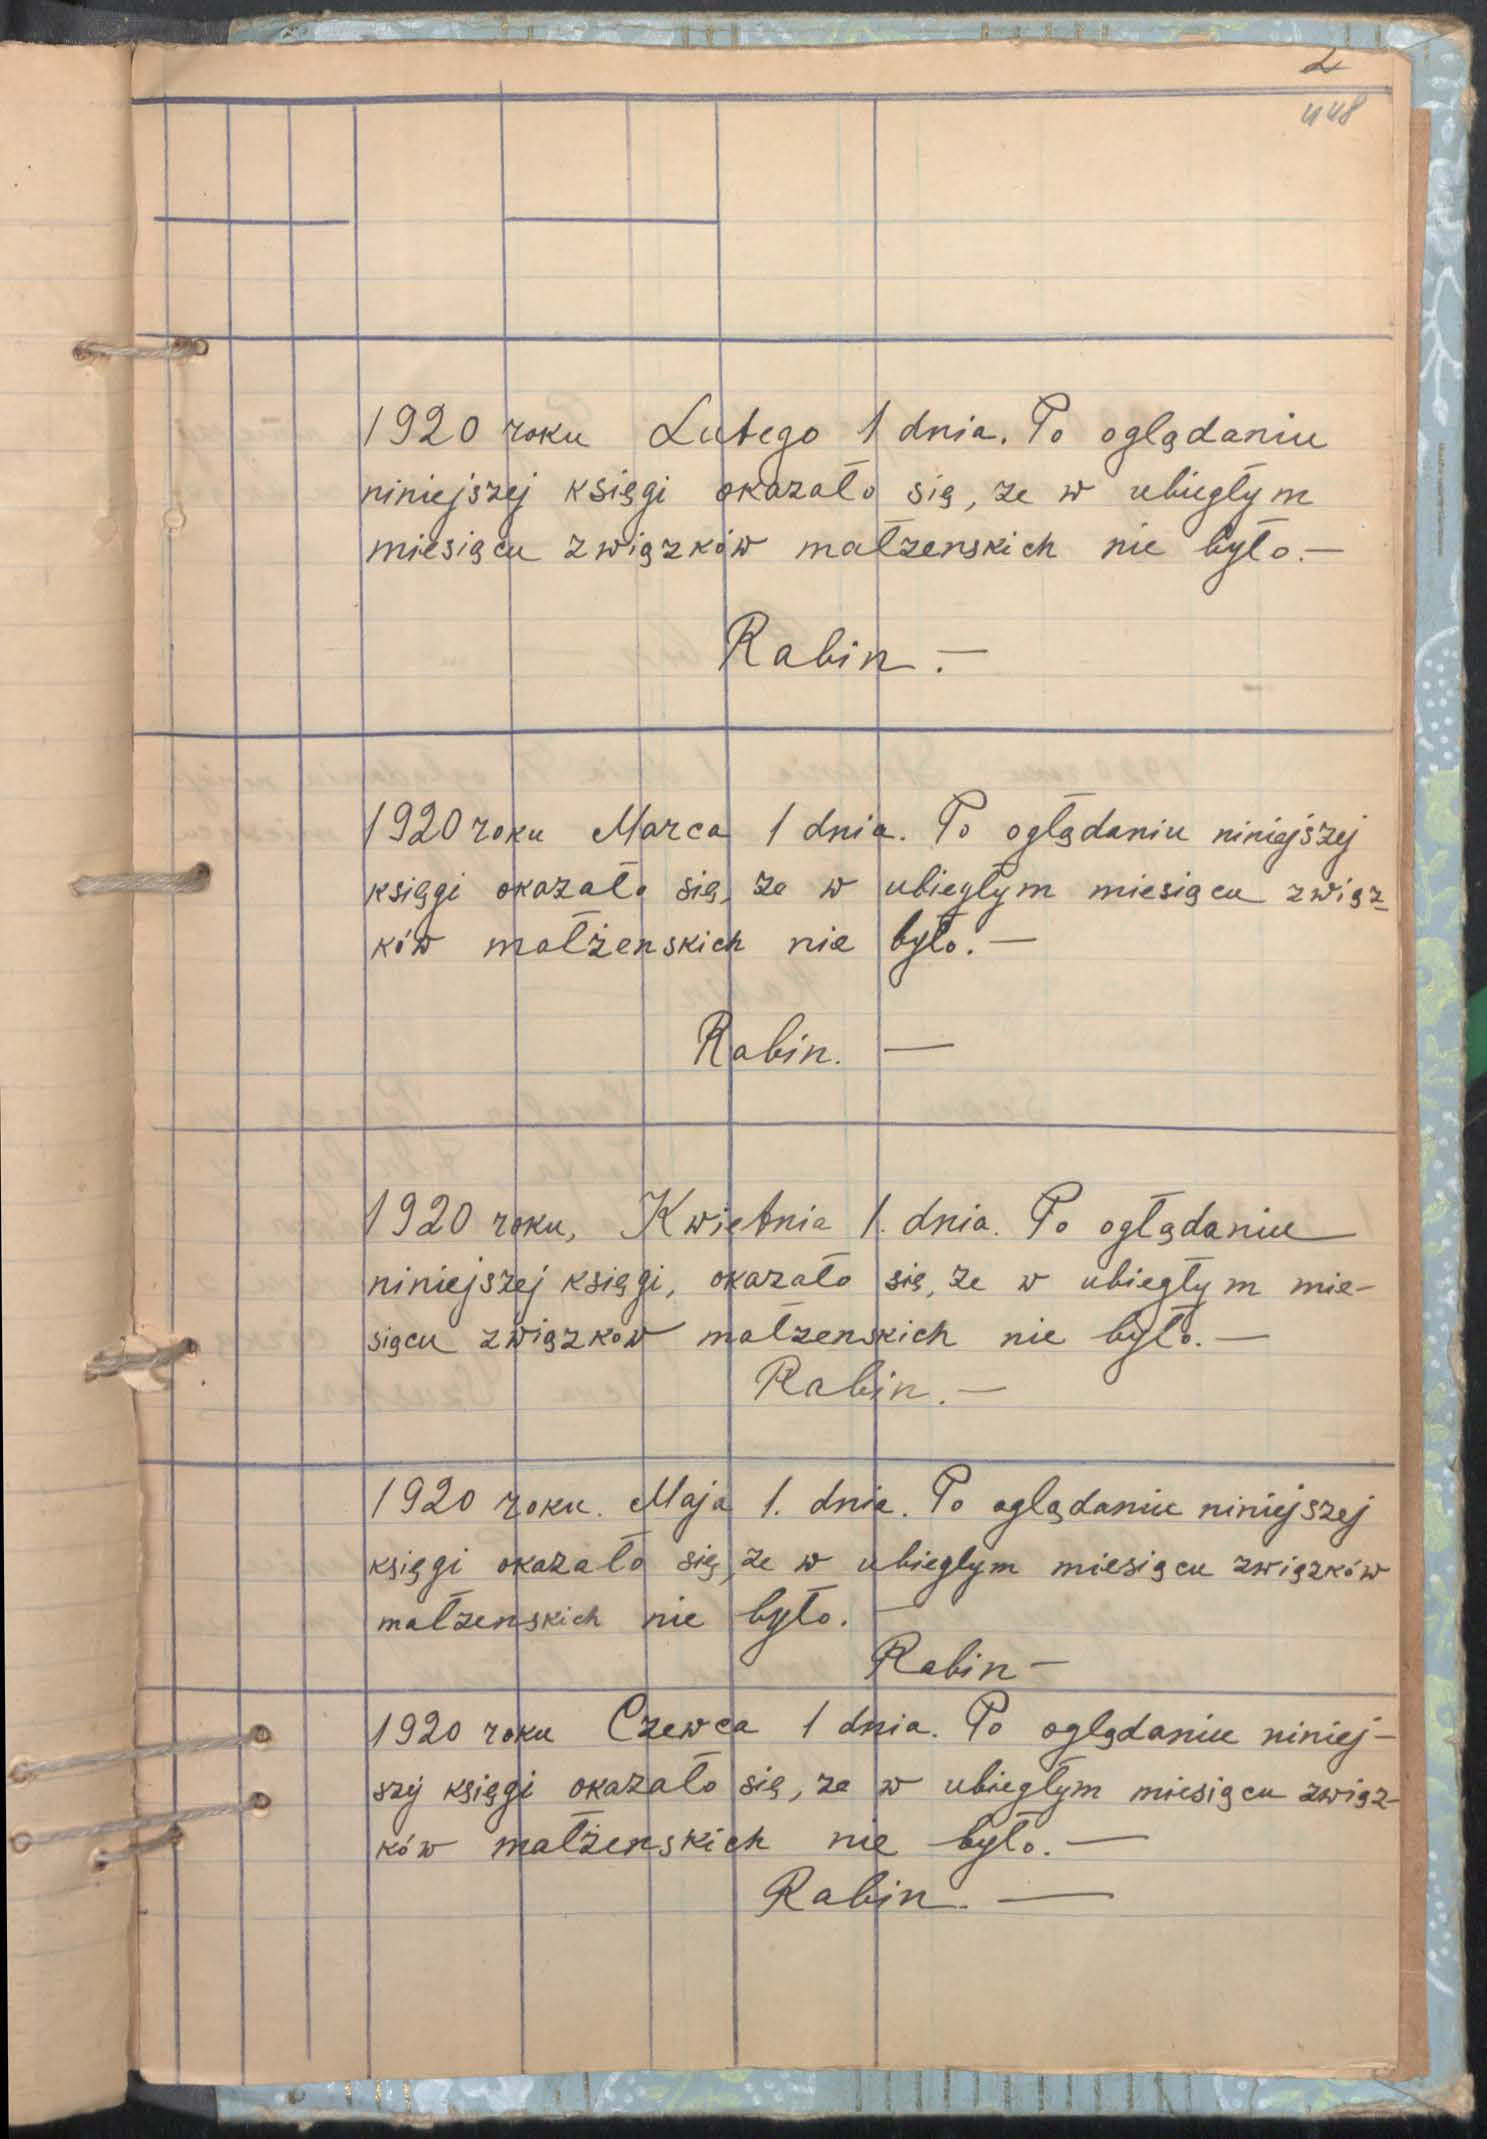 2
448
1920 roku Lutego 1 dnia. Po oglądaniu
niniejszej księgi okazało się, ze w ubiegłym
miesiącu związków małzenskich nie było.—
Rabin.—
1920 roku Marca 1 dnia. Po oglądaniu niniejszej
księgi okazało się, ze w ubiegłym miesiącu związ-
ków małżenskich nie było.—
Rabin. —
1920 roku, Kwietnia 1. dnia. Po oglądaniu
niniejszej księgi, okazało się, ze w ubiegłym mie-
siącu związkow małzenskich nie było.—
Rabin.—
1920 roku. Maja 1. dnia. Po oglądaniu niniejszej
księgi okazało się, ze w ubiegłym miesiącu związków
małzenskich nie było. —
Rabin —
1920 roku Czewca 1 dnia. Po oglądaniu niniej-
szij księgi okazało się, ze w ubiegłym miesiącu związ-
ków małżenskich nie było. —
Rabin. —